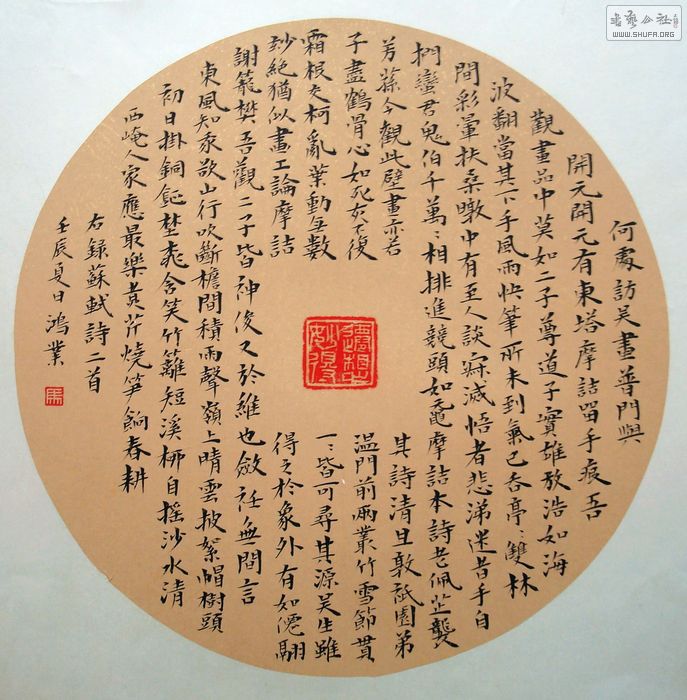 何處訪吳畫普門與
開元開元有東塔摩詰留手痕吾
觀畫品中莫如二子尊道子實雄放浩如海
波翻當其下手風雨快筆所未到氣已吞亭々雙林
間彩暈扶桑暾中有至人談寂滅悟者悲涕迷者手自
捫蠻君鬼伯千萬々相排進競頭如黿摩詰本詩老佩芷襲
芳蓀今觀此壁畫亦若
其詩清且敦祇園弟
子盡鶴骨心如死灰不復
溫門前兩叢竹雪節貫
霜根交柯亂葉動無數
一々皆可尋其源吳生雖
妙絕猶似畫工論摩詰
得之於象外有如僊翮
謝籠樊吾觀二子皆神俊又於維也斂衽無間言
東風知我欲山行吹斷檐間積雨聲嶺上晴雲披絮帽樹頭
初日掛銅鉦埜桃含笑竹籬短溪柳自搖沙水清
西崦人家應最樂煮芹燒筍餉春耕
右錄蘇軾詩二首
壬辰夏日鴻業
馬
遷想妙得
書藝公社
WWW.SHUFA.ORG